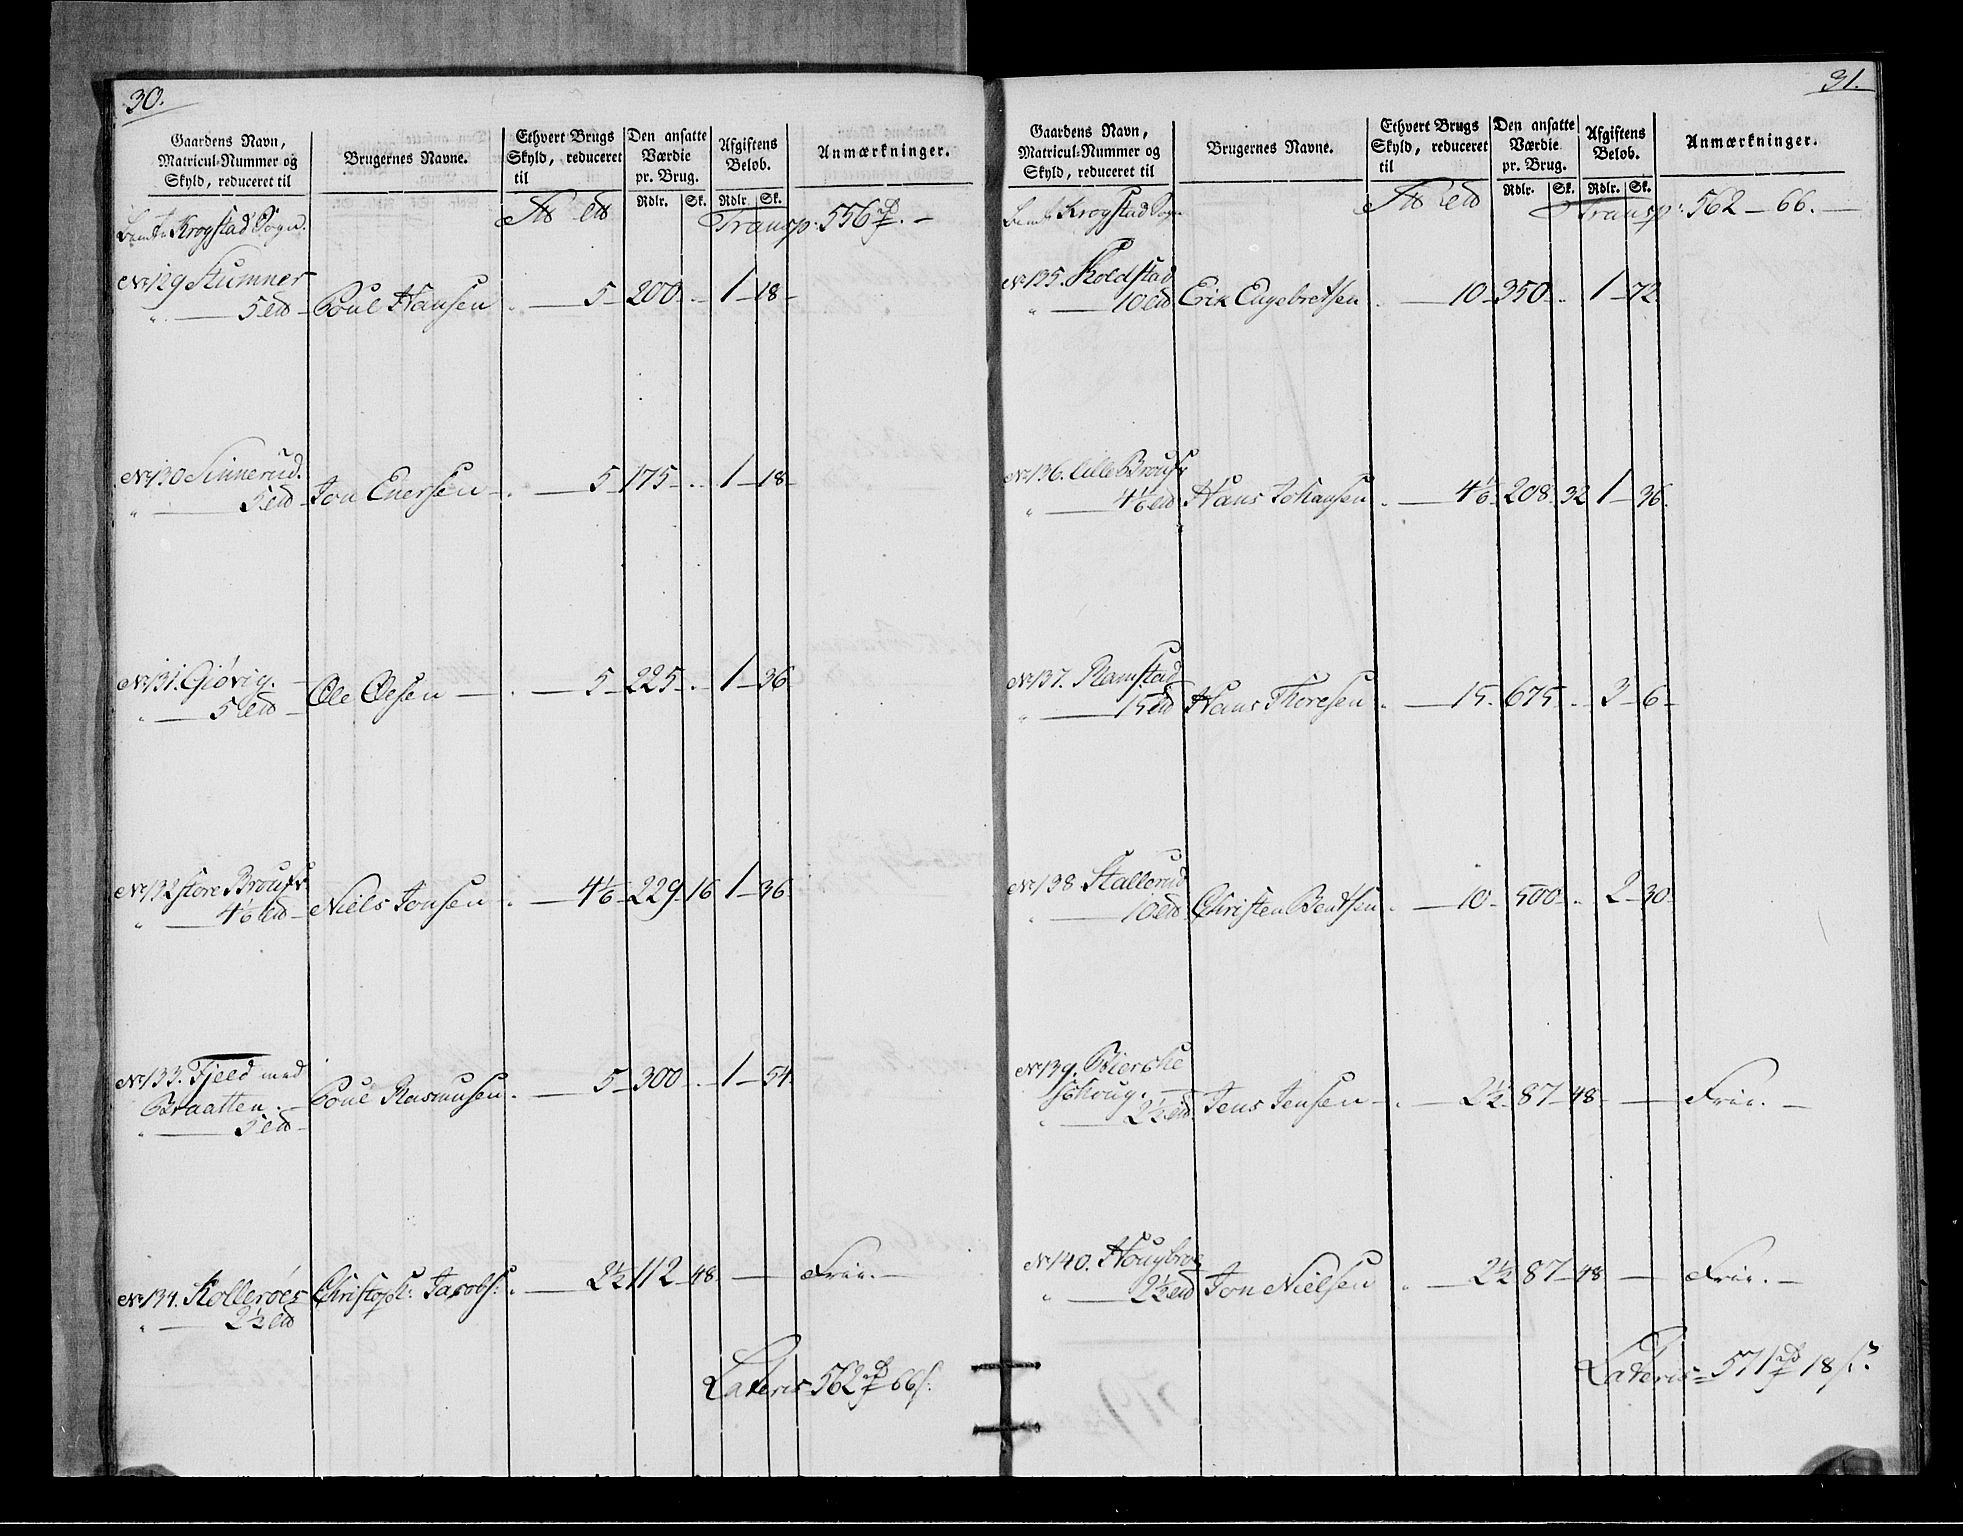 30.
Gaardens Navn, Matricul-Nummer og Skyld, reduceret til | Brugernes Navne. | Ethvert Brugs Skyld, reduceret til | Den ansatte Værdie pr. Brug. Rdlr. Sk. | Afgiftens Beløb. Rdlr. Sk. | Anmærkninger.
Krogstad Sogn. Transp: 556 –
No 129 Stumner
5 – Poul Hansen – 5 – 200 – 1 – 18 –
No 130 Sinnerud.
5 – Jon Enersen – 5 – 175 – 1 – 18 –
No 131. Giövig.
5 – Ole Olesen – 5 – 225 – 1 – 36
No 132 store
4 1/6 – Niels Jonsen – 4 1/6 – 229 16 1 – 36
No 133. Fjeld med
Braatten. – Poul Rasmusen. – 5 – 300 – 1 – 54
5
No 134. Kolleröes Christoph: Jacobs: – 2 1/2 112 – 48 – Frie. –
2 1/2
Lateris 562 66 s:
31.
Gaardens Navn, Matricul-Nummer og Skyld, reduceret til | Brugernes Navne. | Ethvert Brugs Skyld, reduceret til | Den ansatte Værdie pr. Brug. Rdlr. Sk. | Afgiftens Beløb. Rdlr. Sk. | Anmærkninger.
Krogstad Sogn Transp: 562 – 66. –
No 135. Skoldstad
10 Erik Engebretsen – 10 – 350 – 1 – 72
No 136. Lille
4 1/6 Hans Johansen – 4 1/6 – 208 – 32 1 – 36.
No 137. Ramstad
15 Hans Thoresen – 15 – 675 – 3 – 6 –
No 138 Stallerud
10 Christen Bentsen – 10 – 500 – 2 – 30
No 139.
2 1/2 Jens Jensen – 2 1/2 – 87 – 48 – Frie. –
No 140. Hougbroe
2 1/2 Jon Nielsen – 2 1/2 87 – 48 – Frie. –
Lateris 571 18 s.